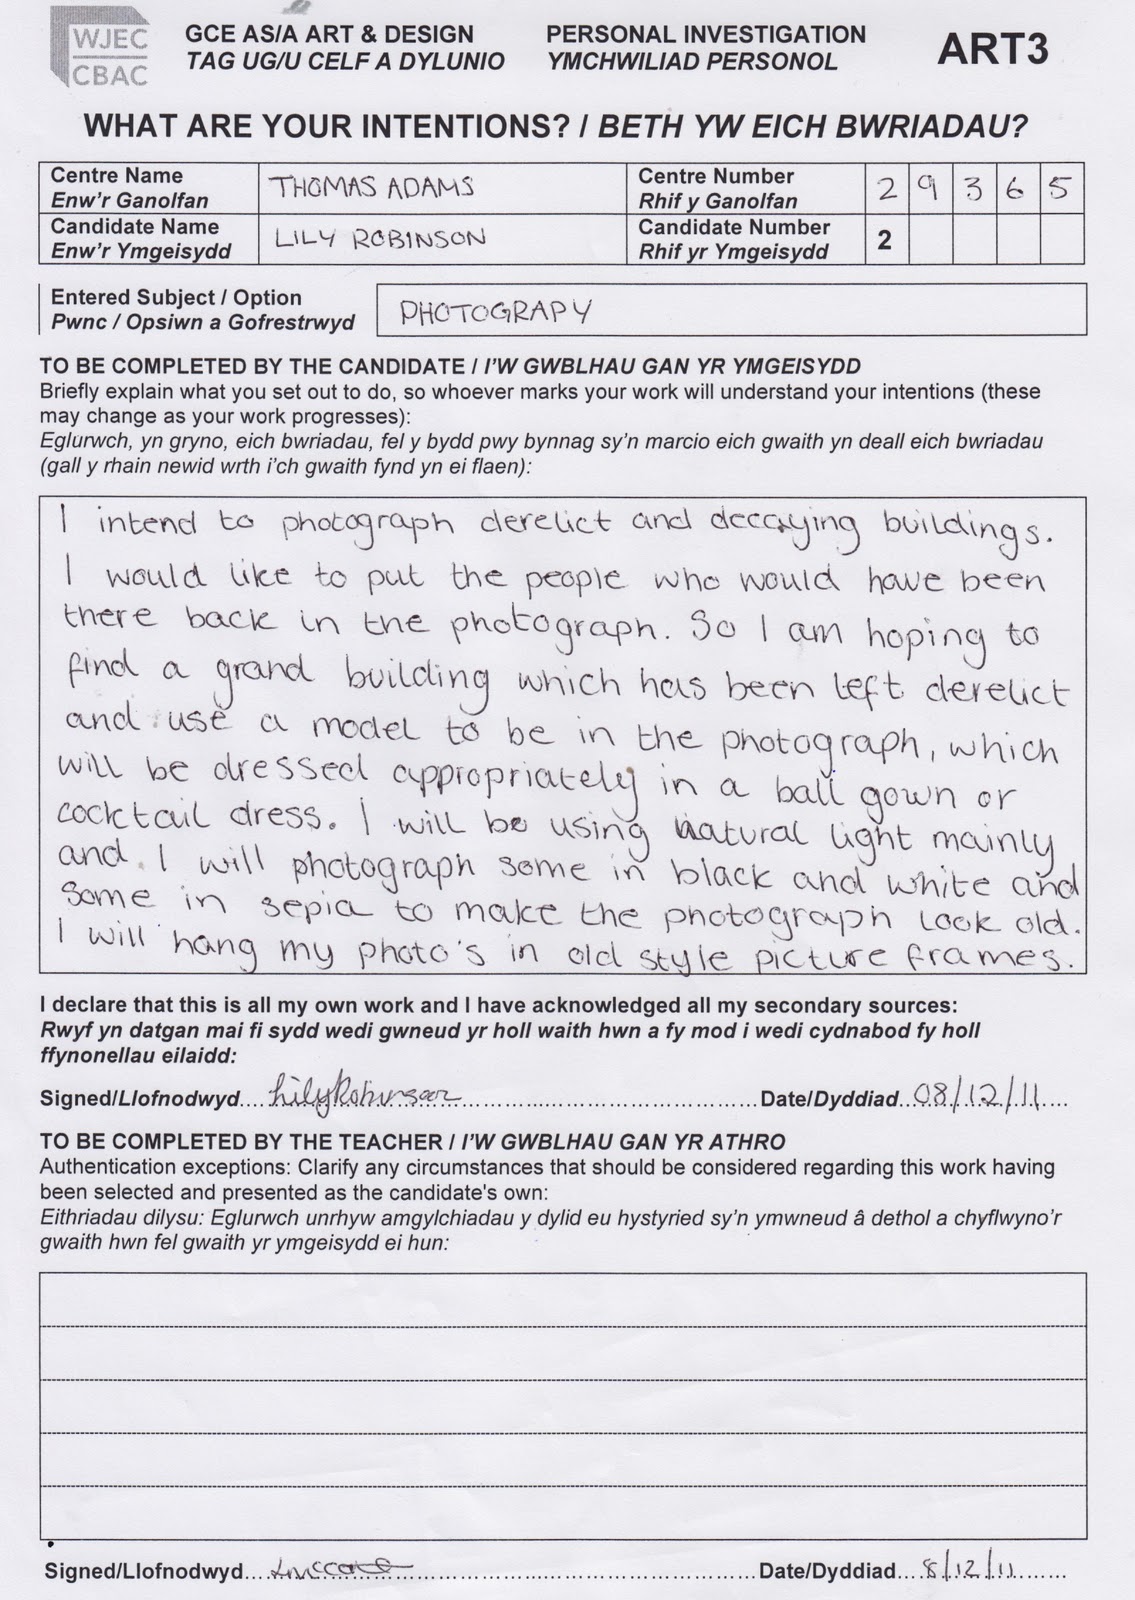 WJEC
CBAC
GCE AS/A ART & DESIGN
TAG UG/U CELF A DYLUNIO
PERSONAL INVESTIGATION
YMCHWILIAD PERSONOL
ART3
WHAT ARE YOUR INTENTIONS? / BETH YW EICH BWRIADAU?
Centre Name
Enw'r Ganolfan
THOMAS ADAMS
Centre Number
Rhif y Ganolfan
2 9 3 6 5
Candidate Name
Enw'r Ymgeisydd
LILY ROBINSON
Candidate Number
Rhif yr Ymgeisydd
2
Entered Subject / Option
Pwnc / Opsiwn a Gofrestrwyd
PHOTOGRAPY
TO BE COMPLETED BY THE CANDIDATE / I'W GWBLHAU GAN YR YMGEISYDD
Briefly explain what you set out to do, so whoever marks your work will understand your intentions (these
may change as your work progresses):
Eglurwch, yn gryno, eich bwriadau, fel y bydd pwy bynnag sy'n marcio eich gwaith yn deall eich bwriadau
(gall y rhain newid wrth i'ch gwaith fynd yn ei flaen):
I intend to photograph derelict and decaying buildings.
I would like to put the people who would have been
there back in the photograph. So I am hoping to
find a grand building which has been left derelict
and use a model to be in the photograph, which
will be dressed appropriately in a ball gown or
cocktail dress. I will be using natural light mainly
and. I will photograph some in black and white and
some in sepia to make the photograph look old.
I will hang my photo's in old style picture frames.
I declare that this is all my own work and I have acknowledged all my secondary sources:
Rwyf yn datgan mai fi sydd wedi gwneud yr holl waith hwn a fy mod i wedi cydnabod fy holl
ffynonellau eilaidd:
Signed/Llofnodwyd....LilyRobinson....Date/Dyddiad...08/12/11....
TO BE COMPLETED BY THE TEACHER / I'W GWBLHAU GAN YR ATHRO
Authentication exceptions: Clarify any circumstances that should be considered regarding this work having
been selected and presented as the candidate's own:
Eithriadau dilysu: Eglurwch unrhyw amgylchiadau y dylid eu hystyried sy'n ymwneud â dethol a chyflwyno'r
gwaith hwn fel gwaith yr ymgeisydd ei hun:
Signed/Llofnodwyd........Date/Dyddiad....8/12/11.......